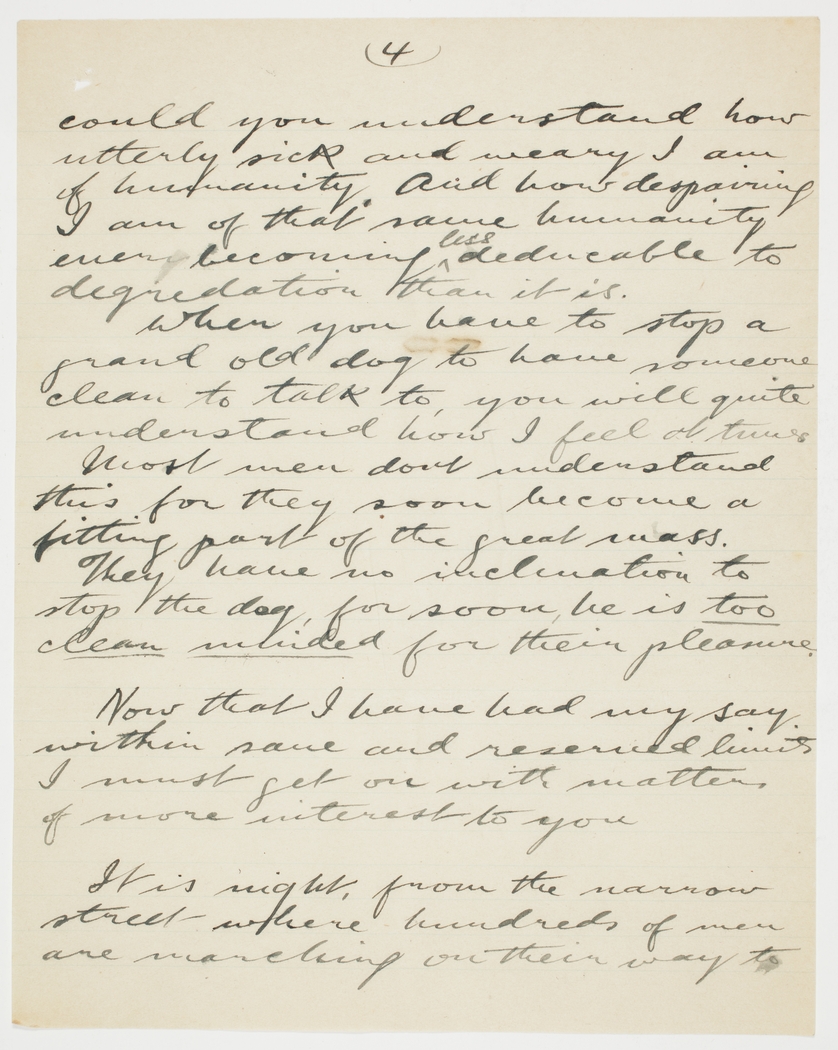 (4)
could you understand how
utterly sick and weary I am
of humanity. And how despairing
I am of that same humanity
ever becoming less deducable to
degredation than it is.
When you have to stop a
grand old dog to have someone
clean to talk to, you will quite
understand how I feel at times
Most men dont understand
this for they soon become a
fitting part of the great mass.
They have no inclination to
stop the dog, for soon, he is too
clean minded for their pleasure.
Now that I have had my say
within sane and reserved limits
I must get on with matters
of more interest to you
It is night, from the narrow
street where hundreds of men
are marching on their way to